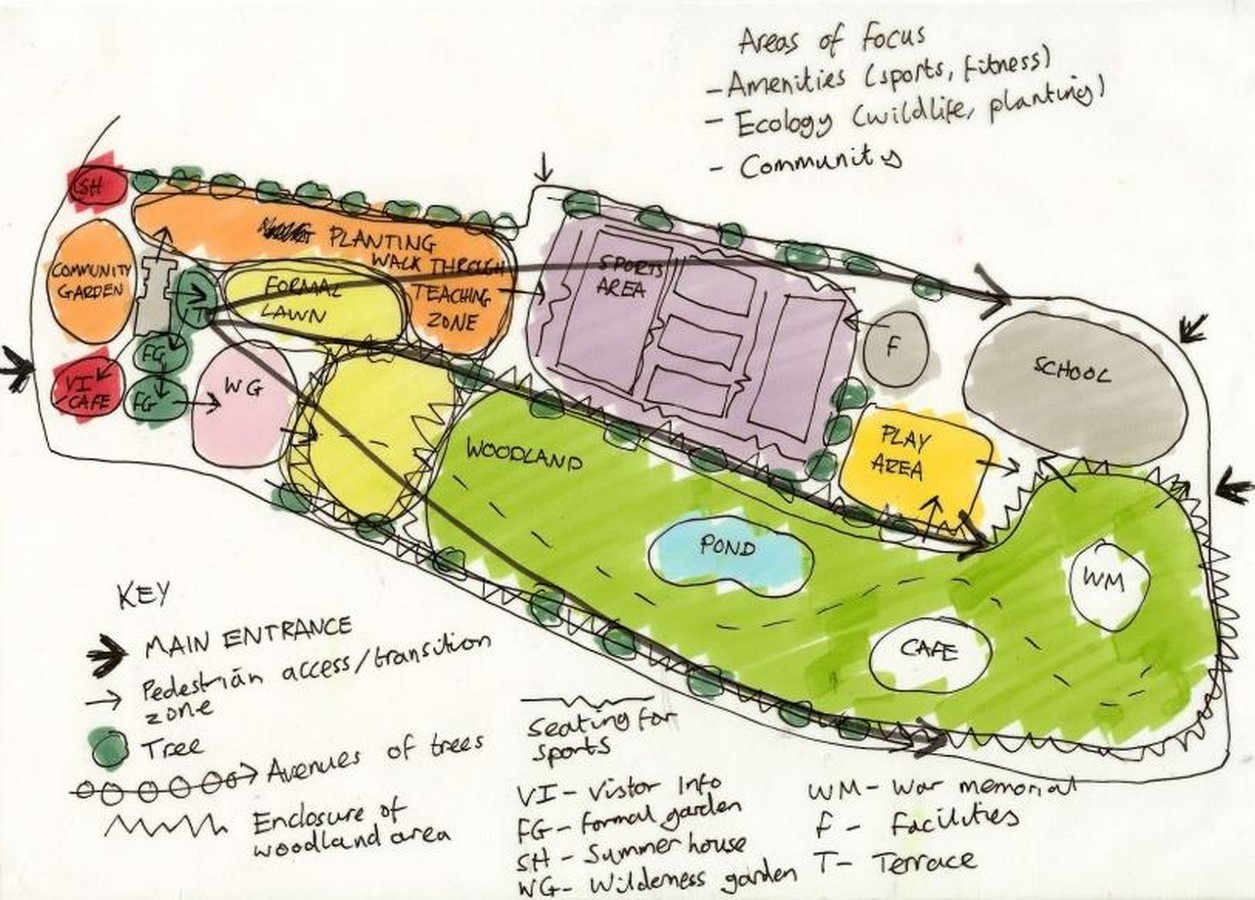 Areas of focus
- Amenities (sports, fitness)
- Ecology (wildlife, planting)
- Community
SH
PLANTING
WALK THROUGH
TEACHING
ZONE
COMMUNITY
GARDEN
FORMAL
LAWN
T
SPORTS
AREA
F
SCHOOL
FG
VI
CAFE
FG
WG
PLAY
AREA
WOODLAND
POND
WM
CAFE
KEY
MAIN ENTRANCE
Pedestrian access/transition
zone
Tree
Avenues of trees
Enclosure of
woodland area
Seating for
sports
VI - Vistor Info
FG - formal garden
SH - Summer house
WG - Wilderness garden
WM - War memorial
F - Facilities
T - Terrace